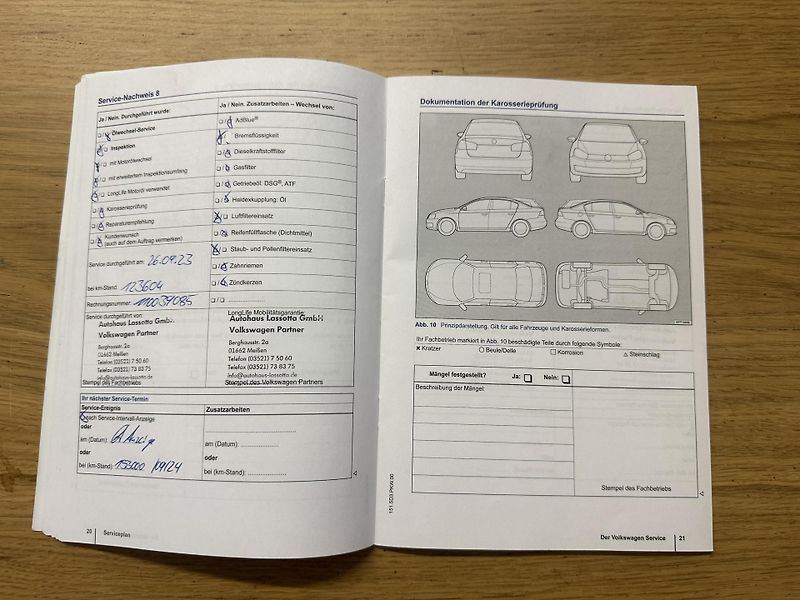 Service-Nachweis 8
Ja / Nein. Durchgeführt wurde:
Ölwechsel-Service
Inspektion
mit Motorölwechsel
mit erweitertem Inspektionsumfang
LongLife Motoröl verwendet
Karosserieprüfung
Reparaturempfehlung
Kundenwunsch
(auch auf dem Auftrag vermerken)
Service durchgeführt am: 26.09.23
bei km-Stand: 123604
Rechnungsnummer: 110039085
Service durchgeführt von:
Autohaus Lassotta GmbH
Volkswagen Partner
Berghausstr. 2a
01662 Meißen
Telefon (03521) 7 50 60
Telefax (03521) 73 83 75
info@autohaus-lassotta.de
Stempel des Fachbetriebs
Ja / Nein. Zusatzarbeiten – Wechsel von:
AdBlue®
Bremsflüssigkeit
Dieselkraftstofffilter
Gasfilter
Getriebeöl: DSG®, ATF
Haldexkupplung: Öl
Luftfiltereinsatz
Reifenfüllflasche (Dichtmittel)
Staub- und Pollenfiltereinsatz
Zahnriemen
Zündkerzen
LongLife Mobilitätsgarantie:
Autohaus Lassotta GmbH
Volkswagen Partner
Berghausstr. 2a
01662 Meißen
Telefon (03521) 7 50 60
Telefax (03521) 73 83 75
info@autohaus-lassotta.de
Stempel des Volkswagen Partners
Ihr nächster Service-Termin
Service-Ereignis
nach Service-Intervall-Anzeige
oder
am (Datum):
oder
bei (km-Stand): 153000 /09/24
Zusatzarbeiten
am (Datum):
oder
bei (km-Stand):
20 Serviceplan
Dokumentation der Karosserieprüfung
Abb. 10 Prinzipdarstellung. Gilt für alle Fahrzeuge und Karosserieformen.
Ihr Fachbetrieb markiert in Abb. 10 beschädigte Teile durch folgende Symbole:
x Kratzer ○ Beule/Delle □ Korrosion △ Steinschlag
Mängel festgestellt? Ja: □ Nein: □
Beschreibung der Mängel:
Stempel des Fachbetriebs
151.5D3.PKW.00
Der Volkswagen Service 21